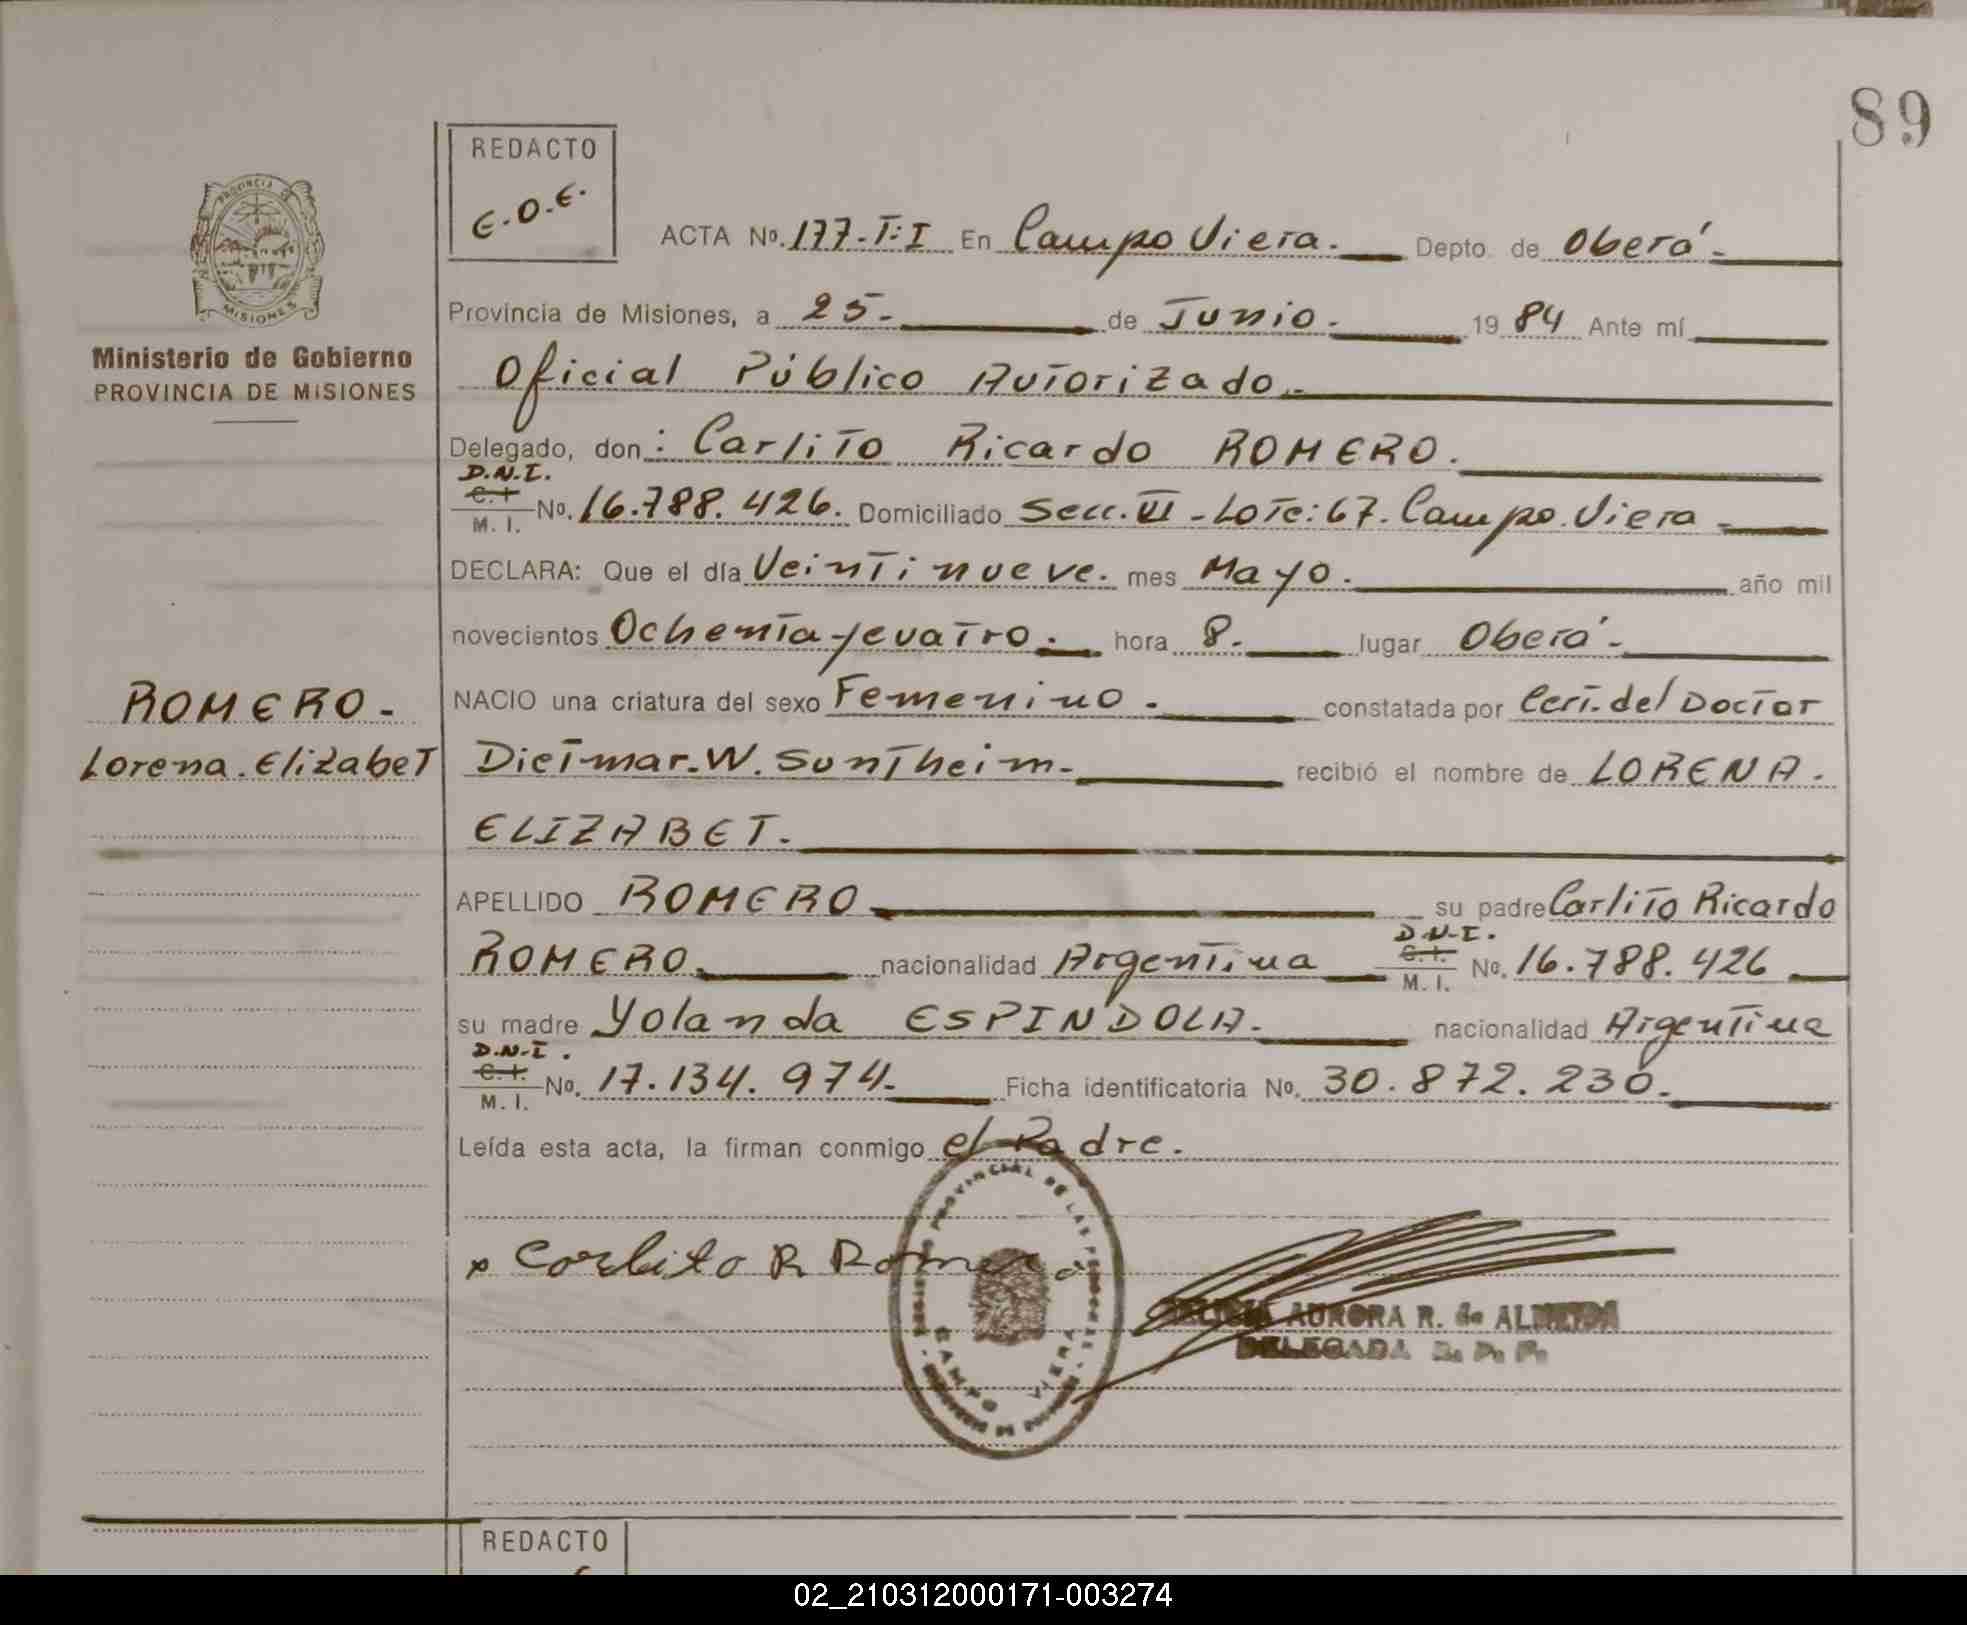 89
REDACTO
E.O.E.
PROVINCIA DE
MISIONES
Ministerio de Gobierno
PROVINCIA DE MISIONES
ACTA No. 177-T:I En Campo Viera. Depto. de Oberá-
Provincia de Misiones, a 25- de Junio. 1984 Ante mí
Oficial Público Autorizado.-
Delegado, don: Carlito Ricardo ROMERO.
D.N.I.
C.I.
M. I. No. 16.788.426. Domiciliado Secc. VI - Lote: 67. Campo Viera -
DECLARA: Que el día Veintinueve. mes Mayo. año mil
novecientos Ochenta y cuatro. hora 8. lugar Oberá-
ROMERO-
NACIO una criatura del sexo Femenino. constatada por Cert. del Doctor
Lorena. Elizabet
Dietmar. W. Suntheim. recibió el nombre de LORENA.
ELIZABET.
APELLIDO ROMERO su padre Carlito Ricardo
D.N.I.
ROMERO. nacionalidad Argentina C.I. M. I. No. 16.788.426
su madre Yolanda ESPINDOLA. nacionalidad Argentina
D.N.I.
C.I.
M. I. No. 17.134.974. Ficha identificatoria No. 30.872.230.
Leída esta acta, la firman conmigo el Padre.
PROVINCIAL DE LAS PERSONAS
CAMPO VIERA
x Carlito R Romero
AURORA R. de ALMEIDA
DELEGADA R. P. P.
REDACTO
02_210312000171-003274